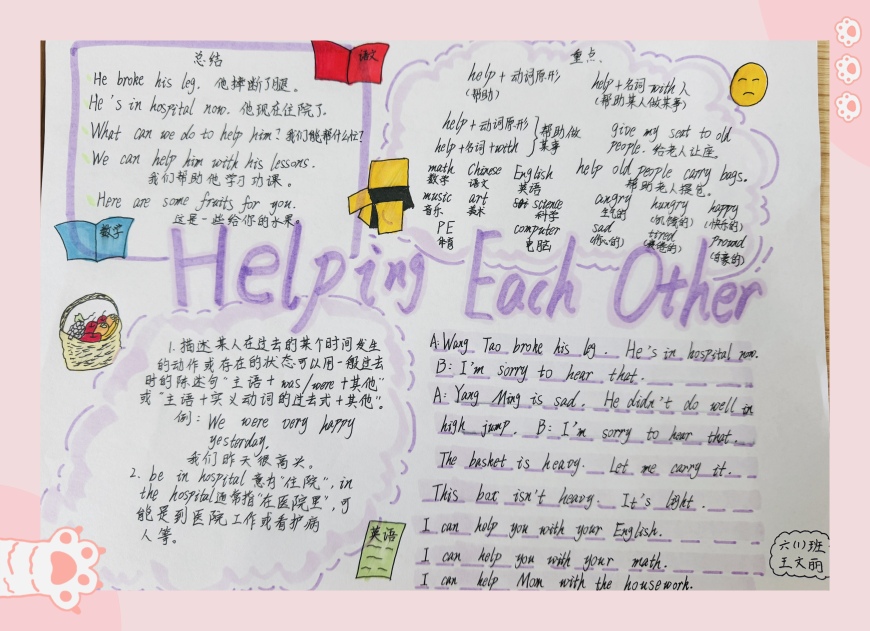 总结
语文
He broke his leg. 他摔断了腿。
He's in hospital now. 他现在住院了。
What can we do to help him? 我们能帮什么忙?
We can help him with his lessons.
我们帮助他学习功课。
Here are some fruits for you.
这是一些给你的水果。
数学
重点、
help + 动词原形
(帮助)
help + 名词 with 人
(帮助某人做某事)
help + 动词原形
help + 名词 + with
帮助做
某事
give my seat to old
people. 给老人让座。
math Chinese English
数学 语文 英语
help old people carry bags.
帮助老人提包。
music art science
音乐 美术 科学
angry hungry happy
生气的 (饥饿的) (快乐的)
PE computer
体育 电脑
sad tired proud
(伤心的) (疲倦的) (自豪的)
Helping Each Other
1. 描述某人在过去的某个时间发生
的动作或存在的状态可以用一般过去
时的陈述句"主语+was/were+其他"
或"主语+实义动词的过去式+其他"。
例: We were very happy
yesterday.
我们昨天很高兴。
2. be in hospital 意为"住院", in
the hospital通常指"在医院里", 可
能是到医院工作或看护病
人等。
英语
A: Wang Tao broke his leg. He's in hospital now.
B: I'm sorry to hear that.
A: Yang Ming is sad. He didn't do well in
high jump. B: I'm sorry to hear that.
The basket is heavy. Let me carry it.
This box isn't heavy. It's light.
I can help you with your English.
I can help you with your math.
I can help Mom with the housework.
六(1)班
王文丽